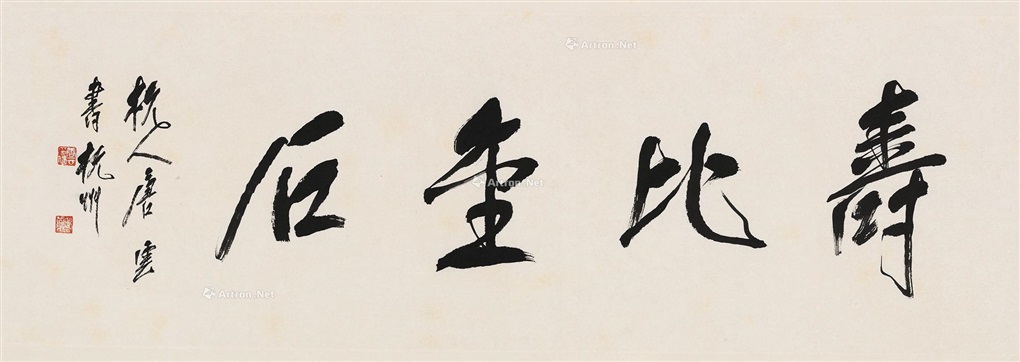 壽比金石
杭人唐雲
書於杭州
Artron.Net
Artron.Net
Artron.Net